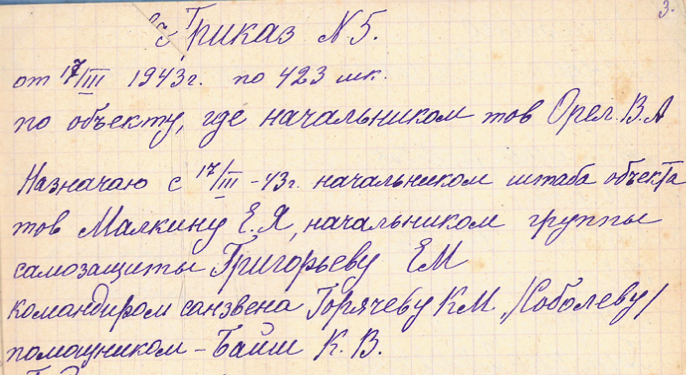 3.
Приказ N 5.
от 17/III 1943г. по 423 шк.
по объекту, где начальником тов Орел. В.А
Назначаю с 17/III -43г. начальником штаба объекта
тов Малкину Е.Я, начальником группы
самозащиты Григорьеву ЕМ
командиром санзвена Горячеву КМ /Соболеву/
помощником - Байш К. В.